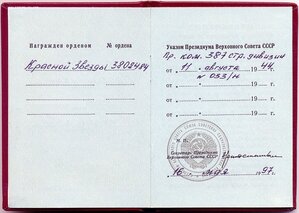 Награжден орденом
№ ордена
Красной Звезды 3808484
Указом Президиума Верховного Совета СССР
Пр. ком. 387 стр. дивизии
от „11“ августа 1944 г.
№ 033/н
от „ “ 19 г.
от „ “ 19 г.
от „ “ 19 г.
М. П.
Секретарь Президиума
Верховного Совета СССР
„16“ мая 1997 г.